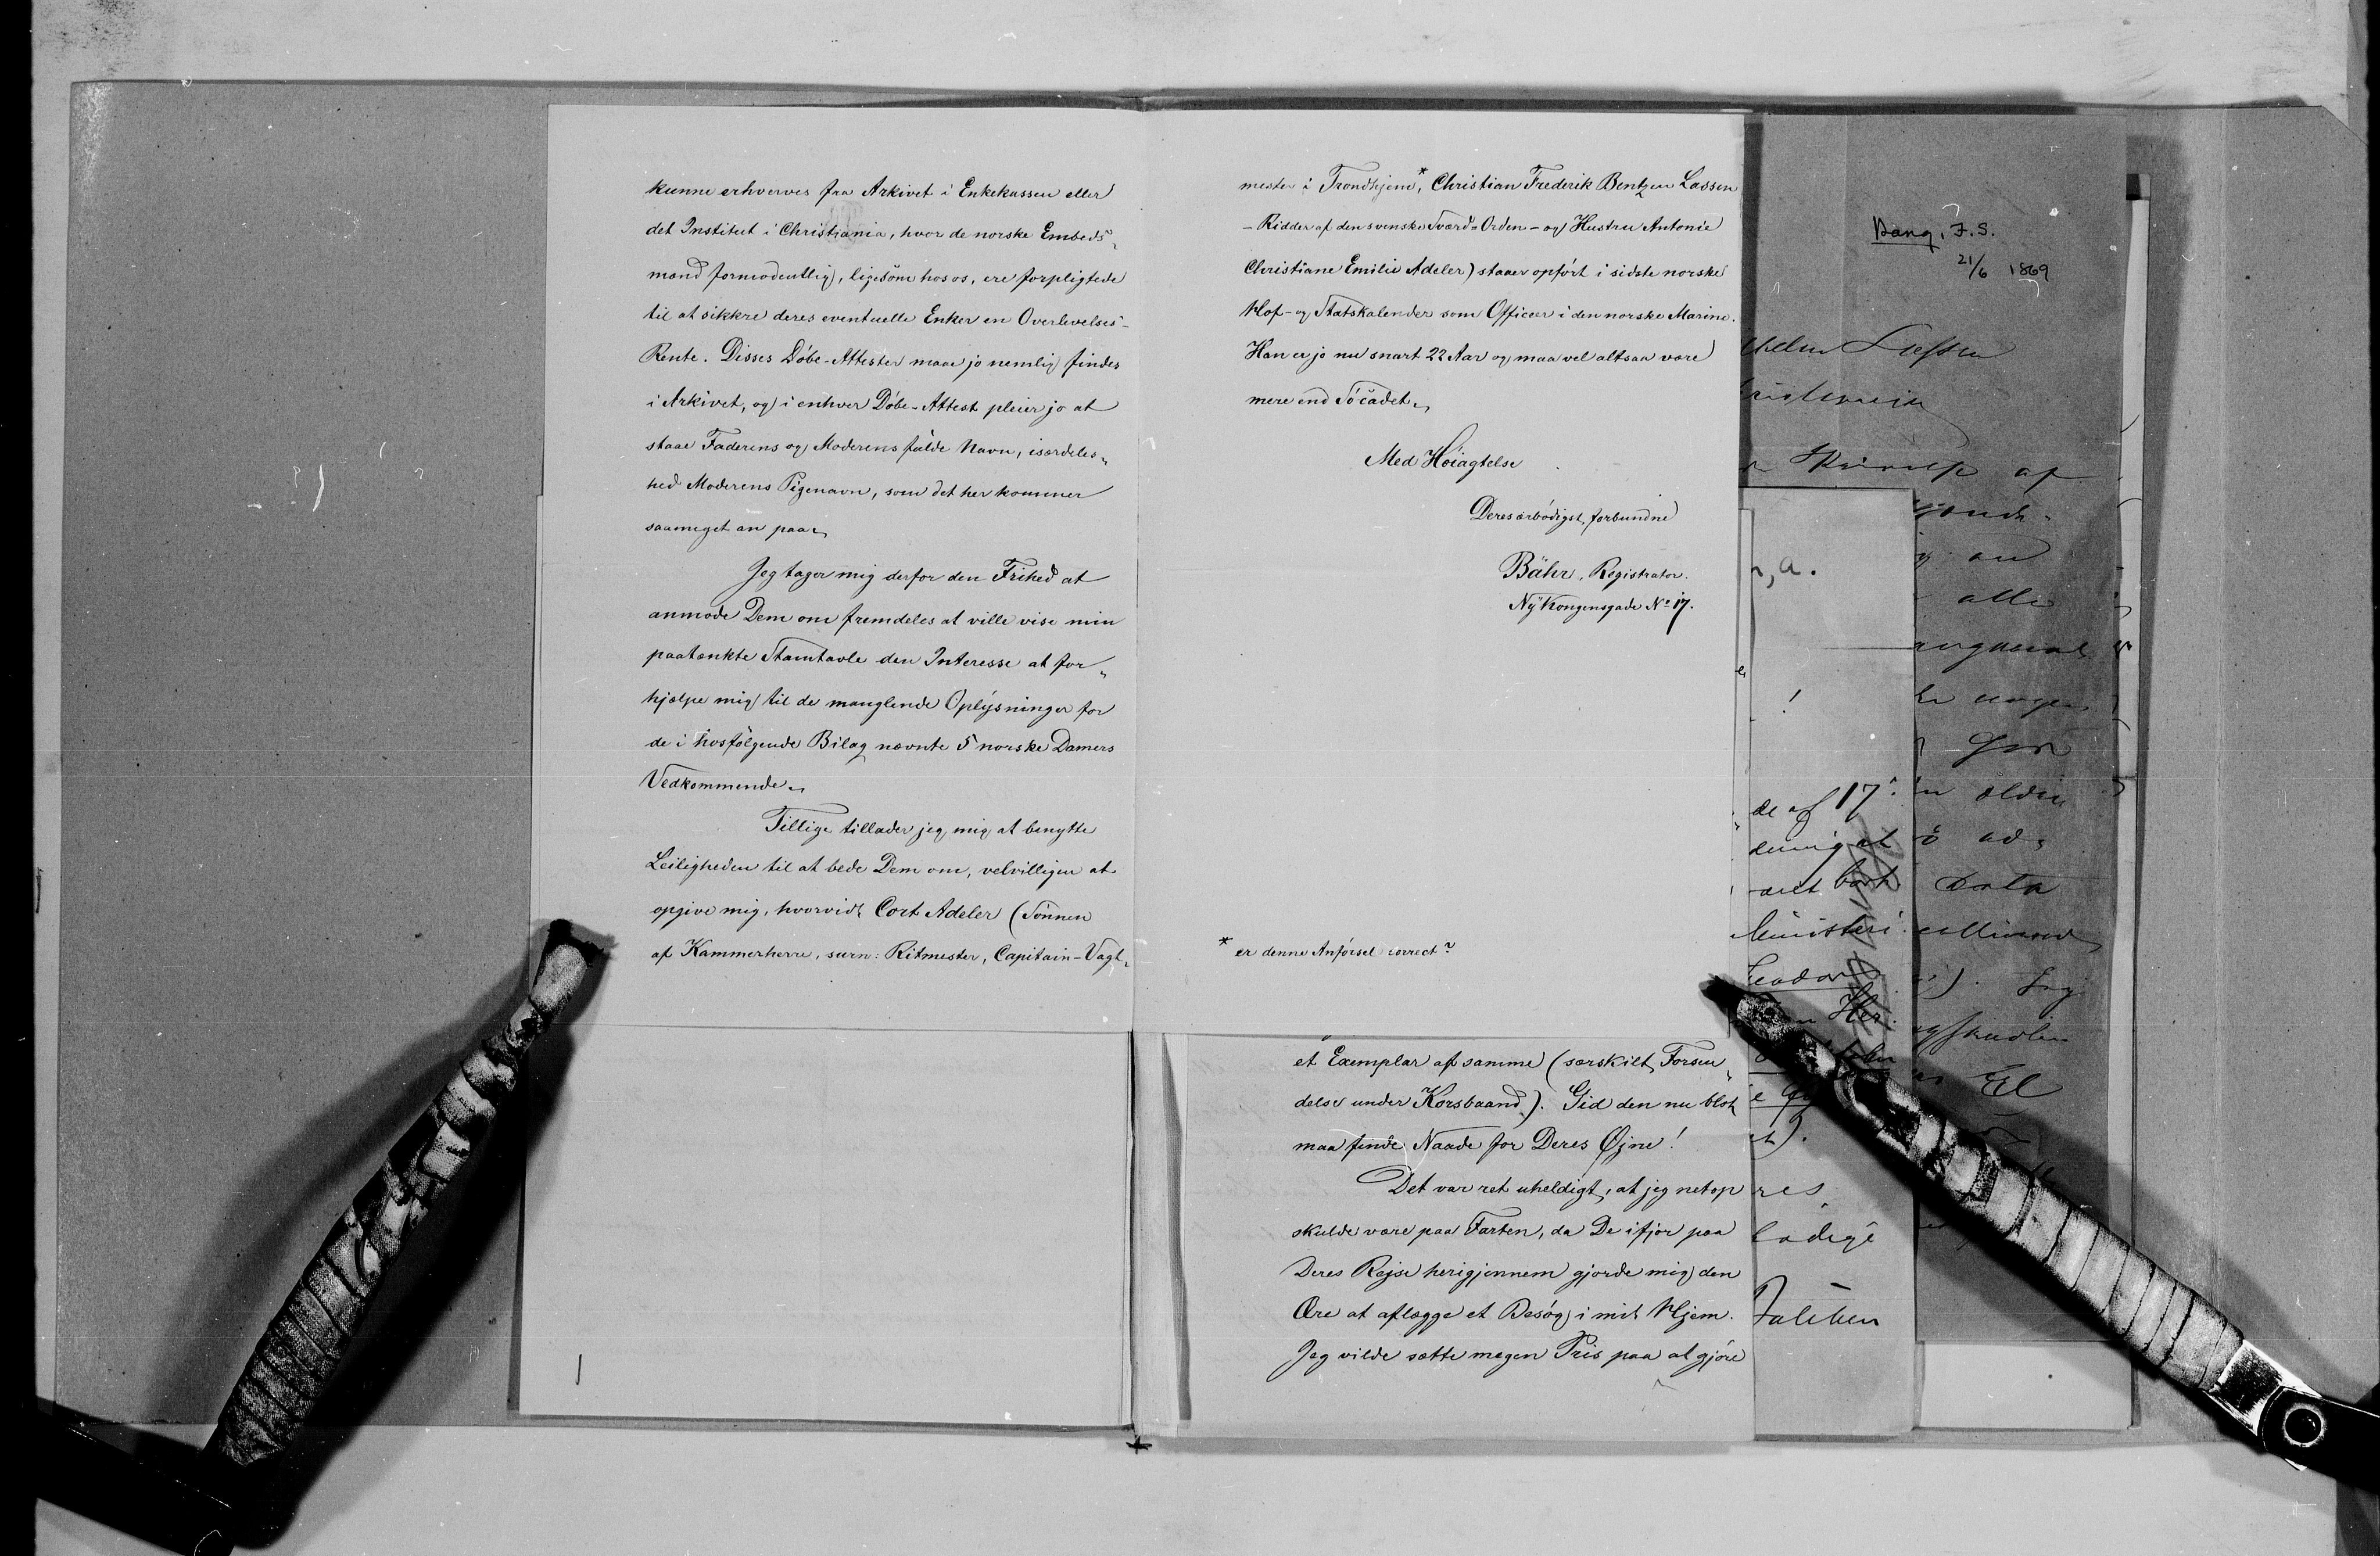 kunne erhverves fra Arkivet i Enkekassen eller
det Institut i Christiania, hvor de norske Embeds„
mænd formodentlig, ligesom hos os, ere forpligtede
til at sikkre deres eventuelle Enker en Overlevelses-
Rente. Disses Döbe-Attester maae jo nemlig findes
i Arkivet, og i enhver Döbe-Attest pleier jo at
staae Faderens og Moderens fulde Navn, isærdeles„
hed Moderens Pigenavn, som det her kommer
saameget an paa.
Jeg tager mig derfor den Frihed at
anmode Dem om fremdeles at ville vise min
paatænkte Stamtavle den Interesse at for„
hjælpe mig til de manglende Oplysninger for
de i hosfölgende Bilag nævnte 5 norske Damers
Vedkommende.
Tillige tillader jeg mig at benytte
Leiligheden til at bede Dem om, velvilligen at
opgive mig, hvorvidt Cort Adeler (Sönnen
af Kammerherre, surn: Ritmester, Capitain-Vagt„
mester i Trondhjem*, Christian Frederik Bentzen Lassen
- Ridder af den svenske Sværd-Orden - og Hustru Antonie
Christiane Emilie Adeler) staaer opfört i sidste norske
Hof- og Statskalender som Officeer i den norske Marine.
Han er jo nu snart 22 Aar og maa vel altsaa være
mere end Söcadet.
Med Höiagtelse
Deres ærbödigst forbundne
Bähr, Registrator.
Ny Kongensgade No 17.
* er denne Anförsel correct?
et Exemplar af samme (særskilt Forsen„
delse under Korsbaand). Gid den nu blot
maa finde Naade for Deres Øjne!
Det var ret uheldigt, at jeg netop
skulde være paa Farten, da De ifjor paa
Deres Rejse herigjennem gjorde mig den
Ære at aflægge et Besög i mit Hjem.
Jeg vilde sætte megen Pris paa at gjöre
Bang, F. S.
21/6 1869
af
alle
de af 17
Data